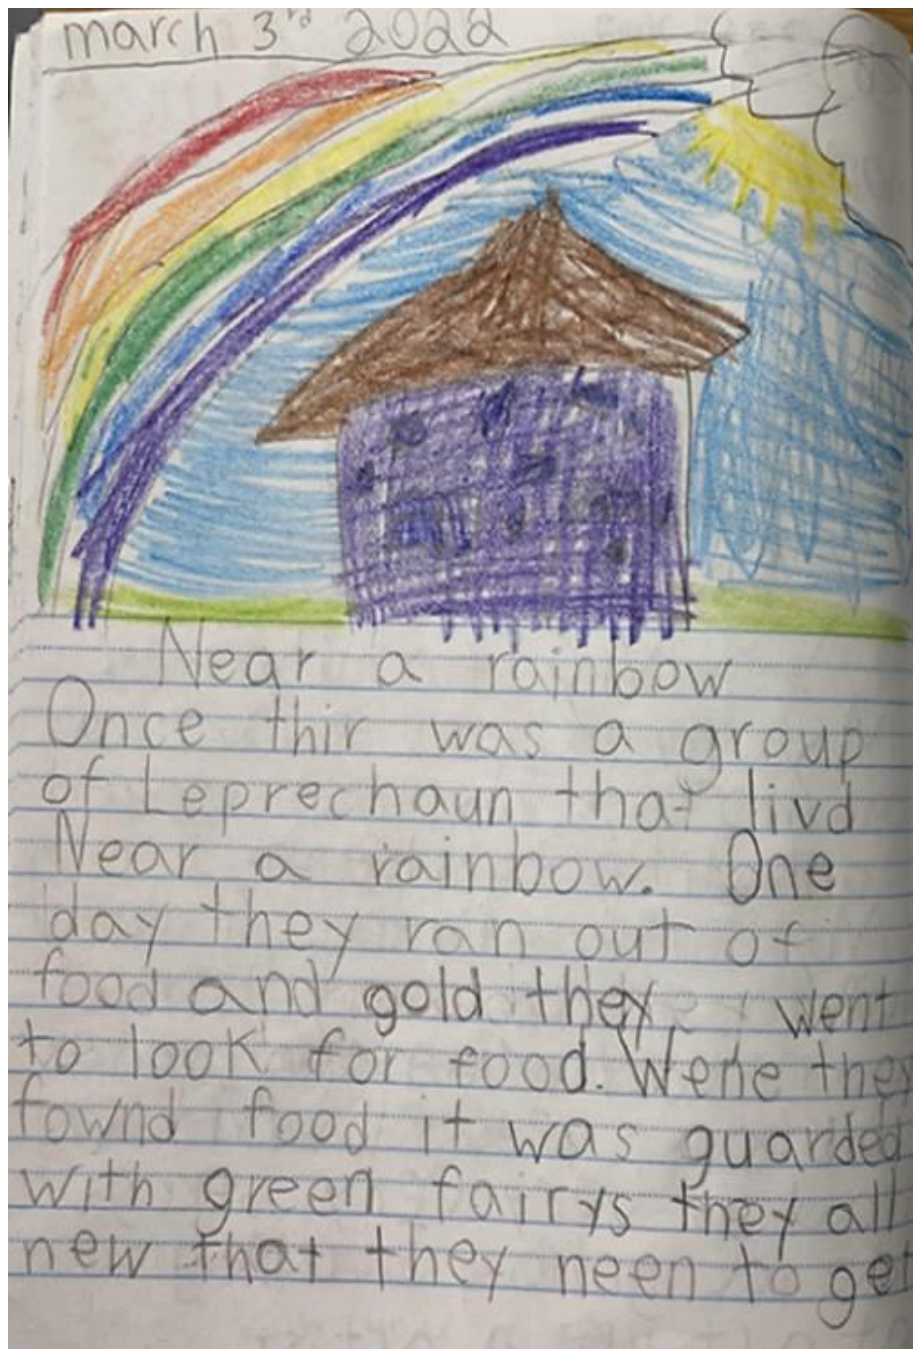 march 3rd 2022
Near a rainbow
Once thir was a group
of Leprechaun that livd
Near a rainbow. One
day they ran out of
food and gold they went
to look for food. Wene they
fownd food it was guarded
with green fairys they all
new that they neen to get